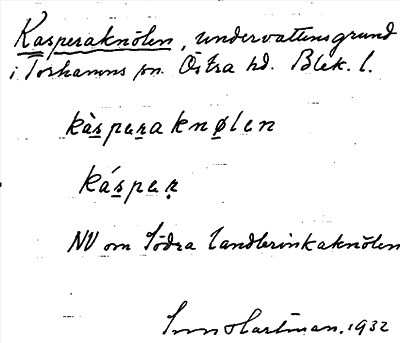 Kasperaknölen, undervattensgrund
i Torhamns sn. Östra hd. Blek. l.
kàsperaknølen
kásper
NV om Södra Landbrinkaknölen
Hartman. 1932